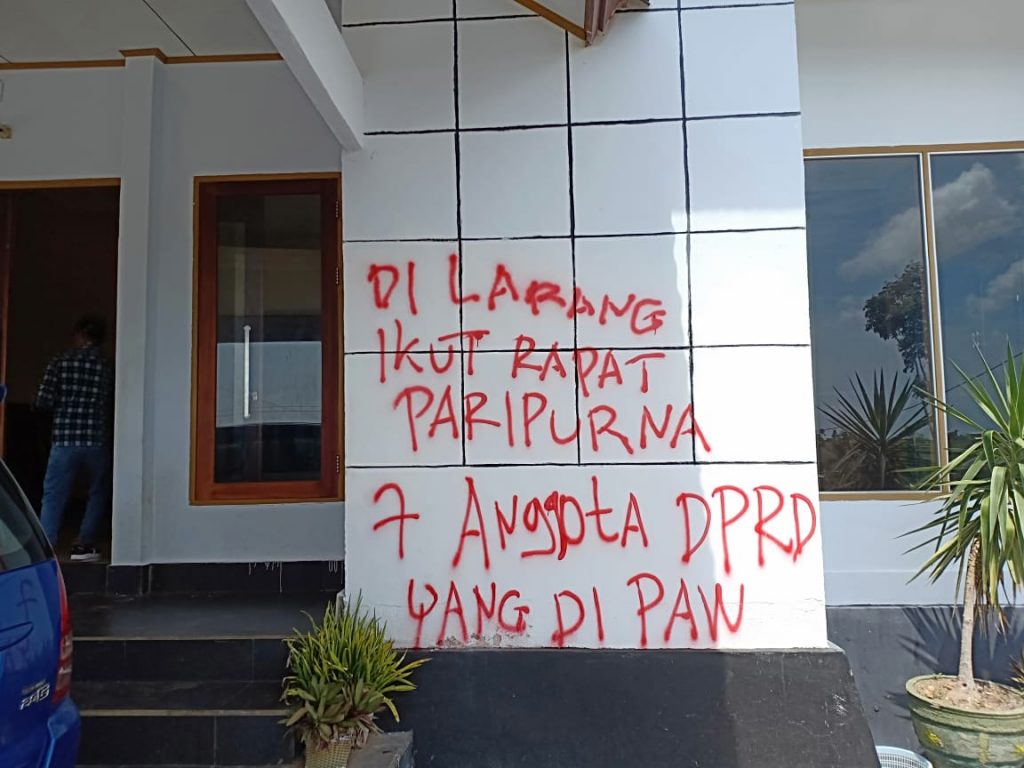 DI LARANG
IKUT RAPAT
PARIPURNA
7 ANggotA DPRD
YANG DI PAW